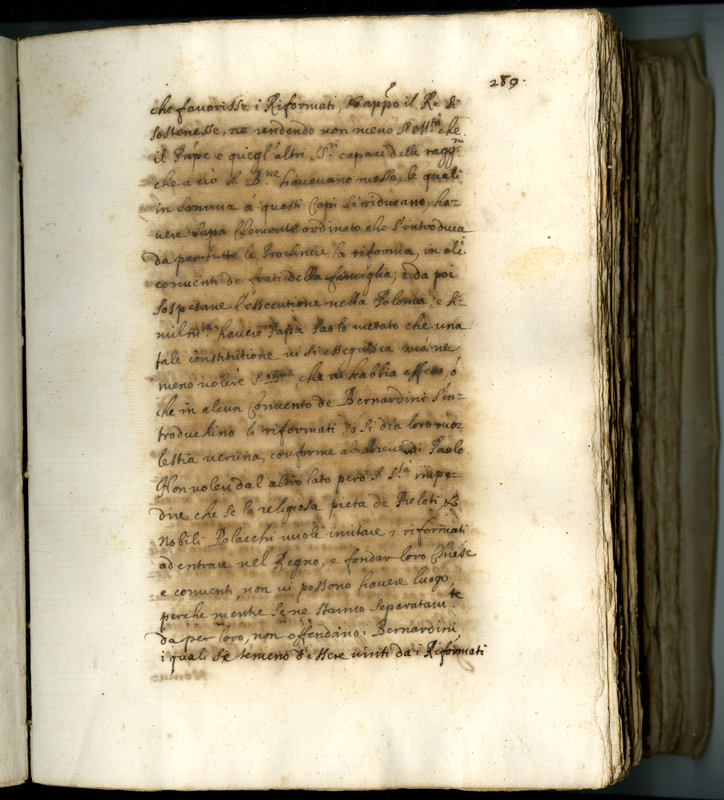 289.
che favorisse i Riformati, o appo il Re di
sostenesse, no rendendo non meno S. Mta che
il Prnpe e quegl'altri SSri capaci delle ragg.ni
che a ciò S. Bne havevano mosso, le quali
in somma à questi Capi si riducano, ha-
vere Papa Clemente ordinato che s'introduca
da per tutte le Provincie la riforma, in alc.i
conventi de frati della famiglia; e da poi
sospesane l'essecutione nella Polonia, e si-
milmte havere Papa Paolo vietato che una
tale constitutione vi si essequisca ma ne
meno volere S. Bne che vi habbia effetto, ò
che in alcun Convento de Bernardini s'in-
troduchino li riformati, o si dia loro mo-
lestia veruna, conforme al breve di Paolo
Non voler dal altro lato però S. Sta impe-
dire che se la religiosa pieta de Prelati, e
Nobili Polacchi vuole invitare i riformati
ad entrare nel Regno, e fondar loro Chiese
e conventi, non vi possono havere luogo
perche mentre se ne stanno separatamte
da per loro, non offendano i Bernardini,
i quali se temeno d'essere uniti da i Riformati